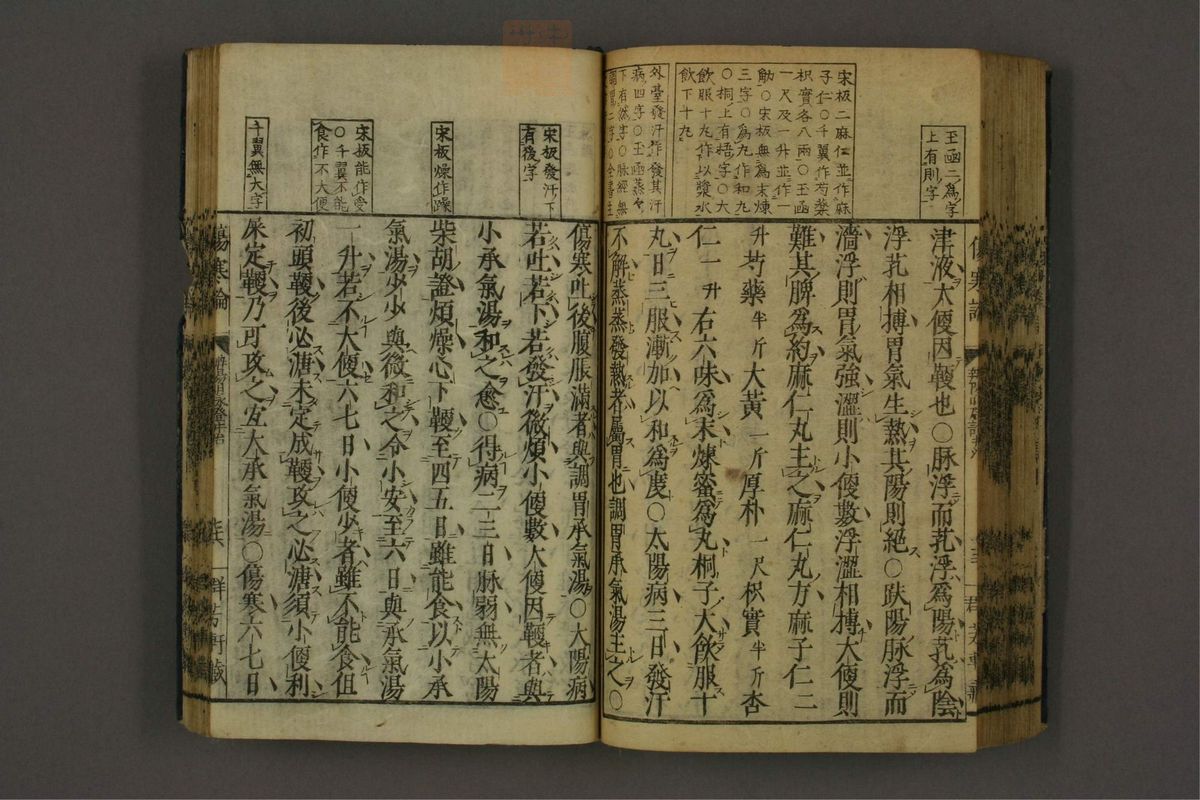 王函二為字
上有則字
宋板二麻仁並作麻
子仁○千翼作芍藥
枳實各八兩○玉函
一尺及一升並作一
觔○宋板無為末煉
三字○為丸作和丸
○桐上有梧字○大
飲服十丸作以漿水
飲下十丸
外臺發汗作發其汗
病四字○玉函蒸々
下有然字○脉經無
津液大便因鞕也○脉浮而芤浮為陽芤為陰
浮芤相搏胃氣生熱其陽則絕○趺陽脉浮而
濇浮則胃氣強濇則小便數浮濇相搏大便則
難其脾為約麻仁丸主之麻仁丸方麻子仁二
升芍藥半斤大黃一斤厚朴一尺枳實半斤杏
仁一升右六味為末煉蜜為丸桐子大飲服十
丸日三服漸加以和為度○太陽病三日發汗
不解蒸蒸發熱者屬胃也調胃承氣湯主之○
宋板發汗下
有後字
宋板燥作躁
宋板能作受
○千翼不能
食作不大便
千翼無大字
傷寒吐後腹脹滿者與調胃承氣湯○太陽病
若吐若下若發汗微煩小便數大便因鞕者與
小承氣湯和之愈○得病二三日脉弱無太陽
柴胡證煩燥心下鞕至四五日雖能食以小承
氣湯少少與微和之令小安至六日與承氣湯
一升若不大便六七日小便少者雖不能食但
初頭鞕後必溏未定成鞕攻之必溏須小便利
屎定鞕乃可攻之宜大承氣湯○傷寒六七日
傷寒論
群芳軒藏